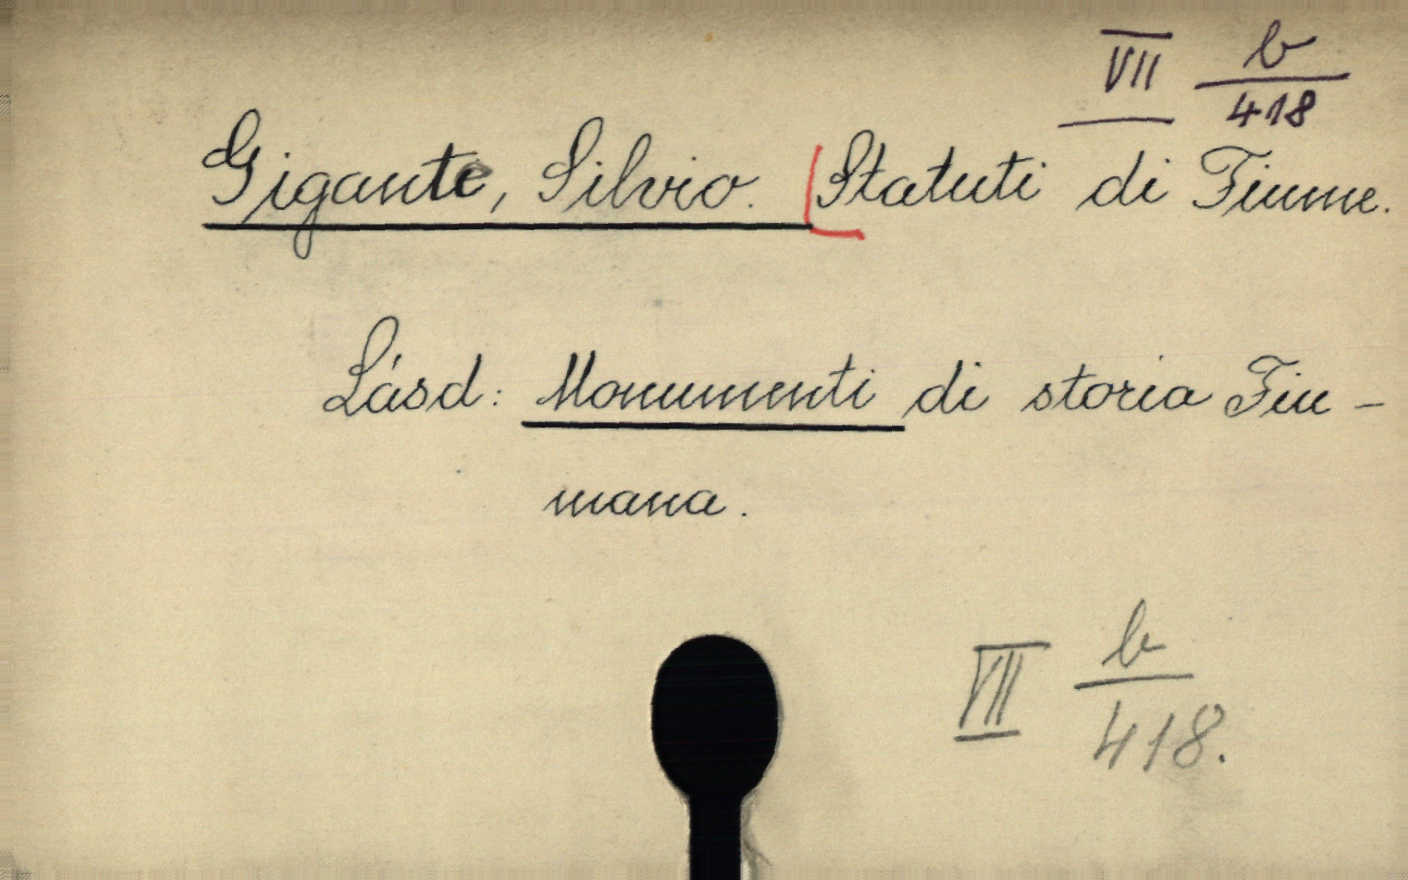 VII b/418
Gigante, Silvio. Statuti di Fiume.
Lásd: Monumenti di storia Fiu-
mana.
VII b/418.